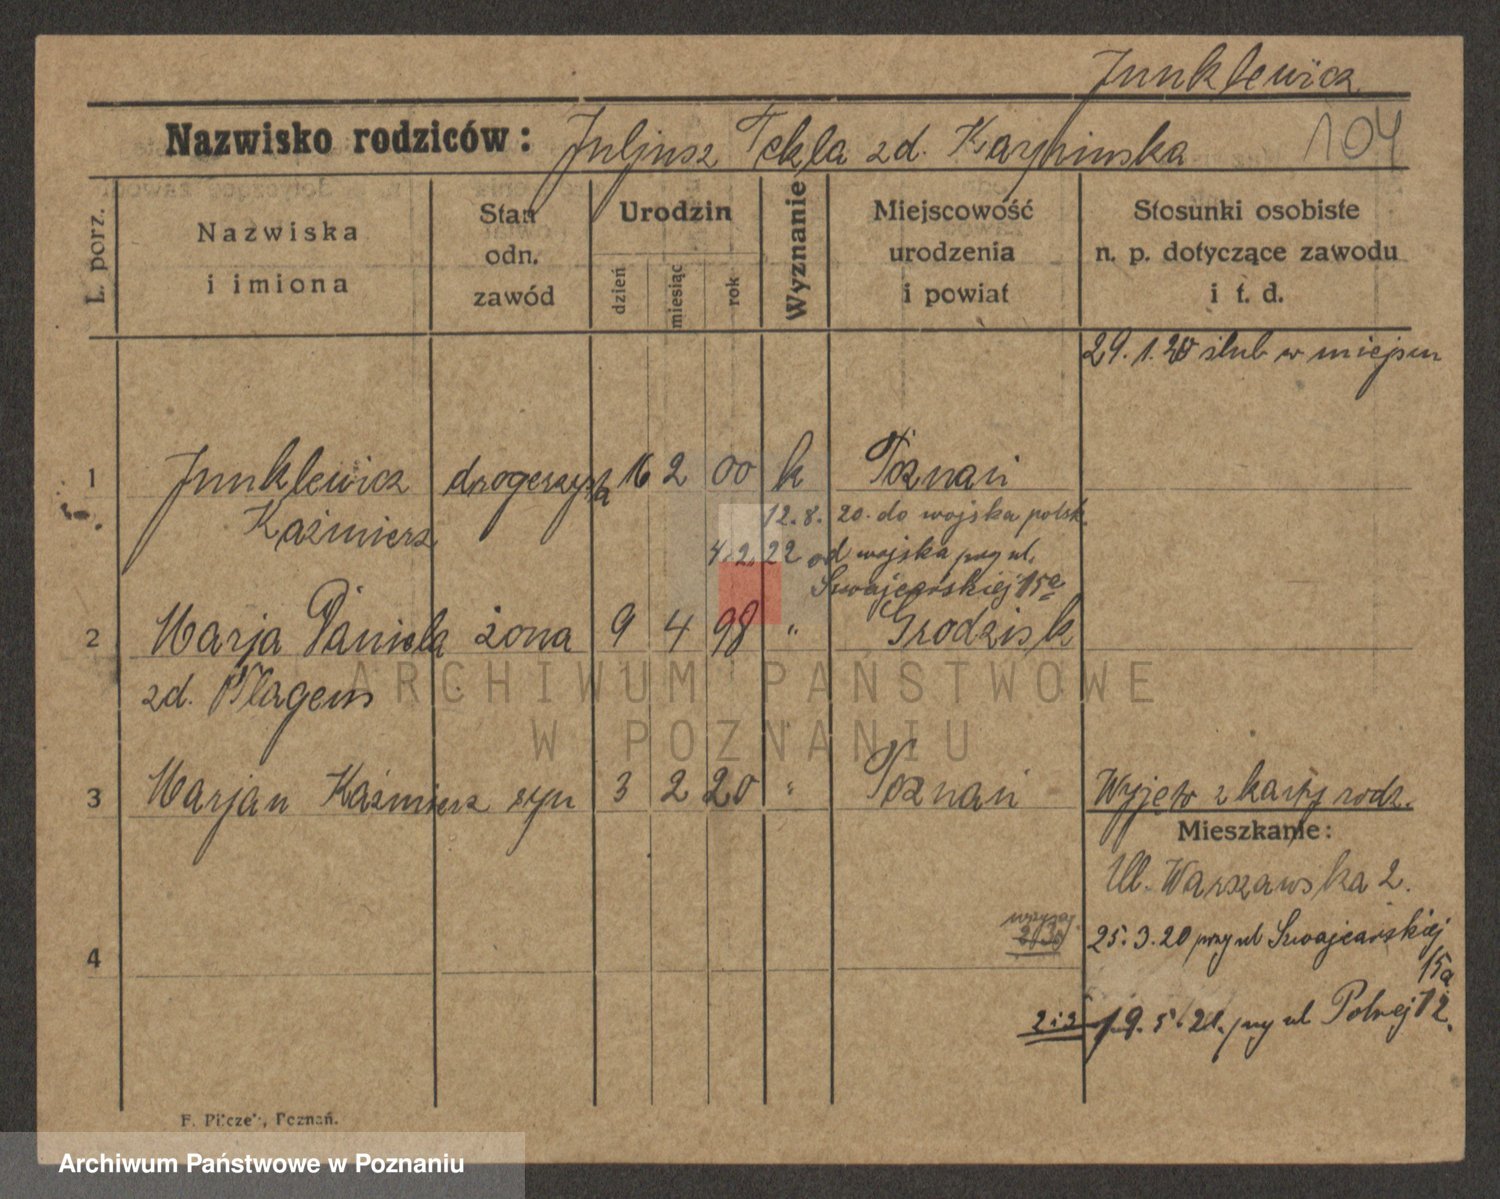 Junklewicz
Nazwisko rodziców: Juljusz Tekla zd. Karpinska 104
L. porz.
Nazwiska
i imiona
Stan
odn.
zawód
Urodzin
dzień
miesiąc
rok
Wyznanie
Miejscowość
urodzenia
i powiat
Stosunki osobiste
n. p. dotyczące zawodu
i t. d.
29. 1. 20 ślub w miejscu
1 Junklewicz drogerzysta 16 2 00 k Poznań
Kaźmierz
12. 8. 20. do wojska polsk.
4. 2. 22 od wojska przy ul.
Szwajcarskiej 15a
2 Marja Daniela żona 9 4 98 " Grodzisk
zd. Plagens
3 Marjan Kaźmierz syn 3 2 20 " Poznań Wyjęto z karty rodz.
Mieszkanie:
Ul. Warszawska 2.
25. 3. 20 przy ul Szwajcarskiej
15a
4
2 i 3 19. 5. 21. przy ul Polnej 12.
F. Pilczek, Poznań.
ARCHIWUM PAŃSTWOWE
W POZNANIU
Archiwum Państwowe w Poznaniu